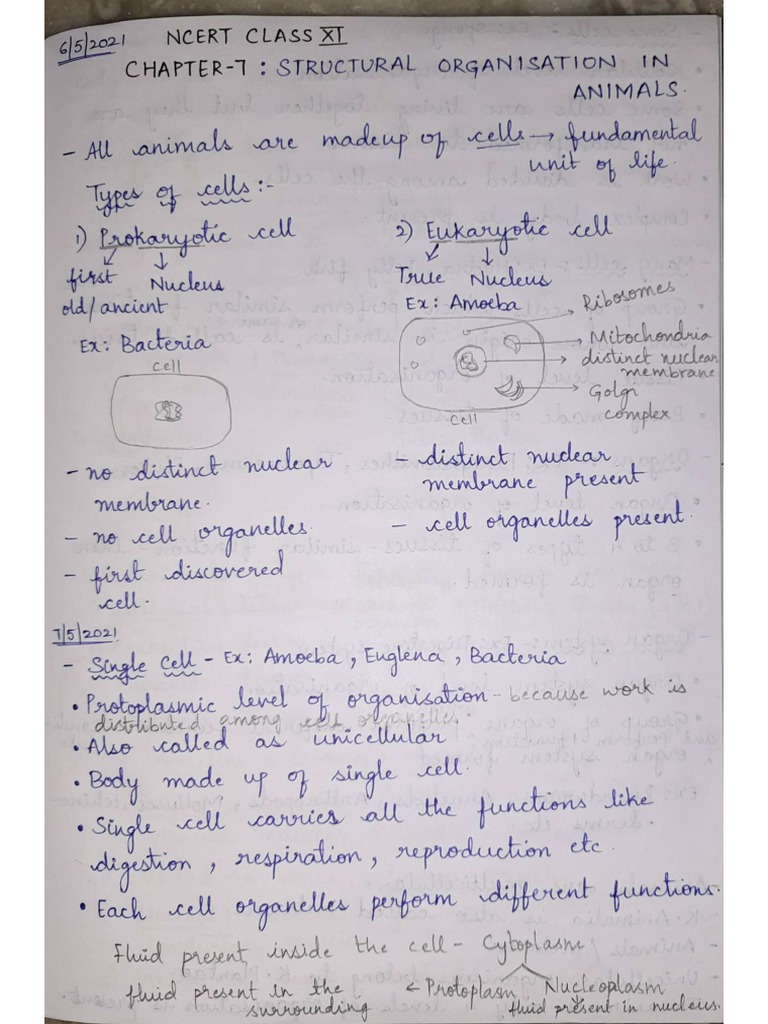 6/5/2021 NCERT CLASS XI
CHAPTER-7 : STRUCTURAL ORGANISATION IN
ANIMALS.
- All animals are madeup of cells → fundamental
unit of life.
Types of cells :-
1) Prokaryotic cell
first Nucleus
old/ancient
Ex: Bacteria
cell
- no distinct nuclear
membrane.
- no cell organelles.
- first discovered
cell.
2) Eukaryotic cell
True Nucleus
Ex: Amoeba
Ribosomes
Mitochondria
distinct nuclear
membrane
Golgi
complex
cell
- distinct nuclear
membrane present
- cell organelles present.
7/5/2021
- Single Cell - Ex: Amoeba, Euglena, Bacteria
• Protoplasmic level of organisation - because work is
distributed among cell organelles.
• Also called as unicellular
• Body made up of single cell.
• Single cell carries all the functions like
digestion, respiration, reproduction etc.
• Each cell organelles perform different functions.
Fluid present inside the cell - Cytoplasm
fluid present in the ← Protoplasm Nucleoplasm
surrounding fluid present in nucleus.